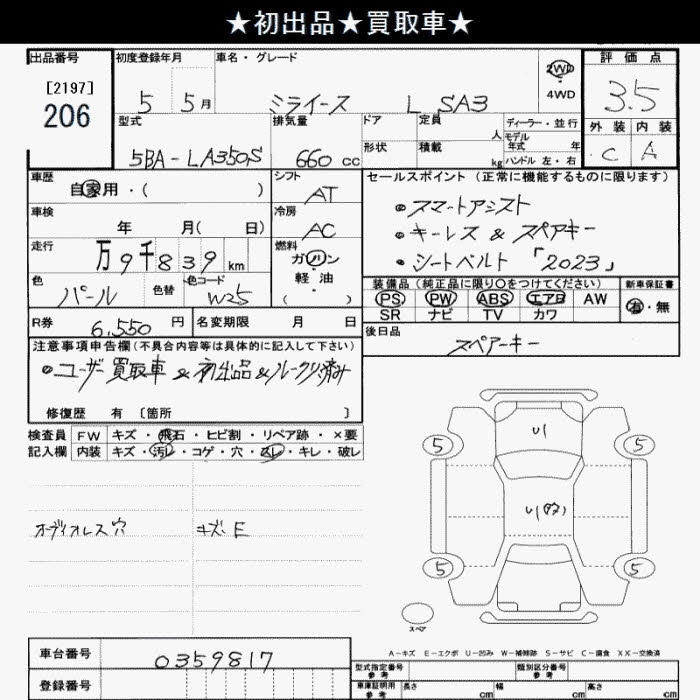 ★初出品★買取車★
出品番号 初度登録年月 車名・グレード 2WD 4WD 評価点
[2197]
206
5 5月 ミライース L SA3 3.5
型式 排気量 ドア 定員 人 ディーラー・並行 外装 内装
5BA-LA350S 660cc 形状 積載 kg モデル年式 年 ハンドル 左・右 C A
車歴 シフト セールスポイント(正常に機能するものに限ります)
自家用・( ) AT
・スマートアシスト
車検 冷房
年 月( 日) AC
・キーレス & スペアキー
走行 燃料
万9千839km ガソリン・軽油( )
・シートベルト「2023」
色 色替 色コード 装備品(純正品に限り○をつけてください) 新車保証書
パール W25 PS PW ABS エアB AW 有・無
SR ナビ TV カワ
R券 6,550円 名変期限 月 日 後日品
スペアーキー
注意事項申告欄(不具合内容等は具体的に記入して下さい)
・ユーザー買取車 & 初出品 & ルームクリ済み
修復歴 有〔箇所 〕
検査員 FW キズ・飛石・ヒビ割・リペア跡・×要
記入欄 内装 キズ・汚レ・コゲ・穴・スレ・キレ・破レ
U1
5 5
オーディオレス穴 キズ、E
5 5
スペア
A-キズ E-エクボ U-凹み W-補修跡 S-サビ C-腐食 XX-交換済
車台番号 0359817 型式指定番号 参考 類別区分番号 参考
登録番号 車庫証明用 参考 長さ cm 幅 cm 高さ cm